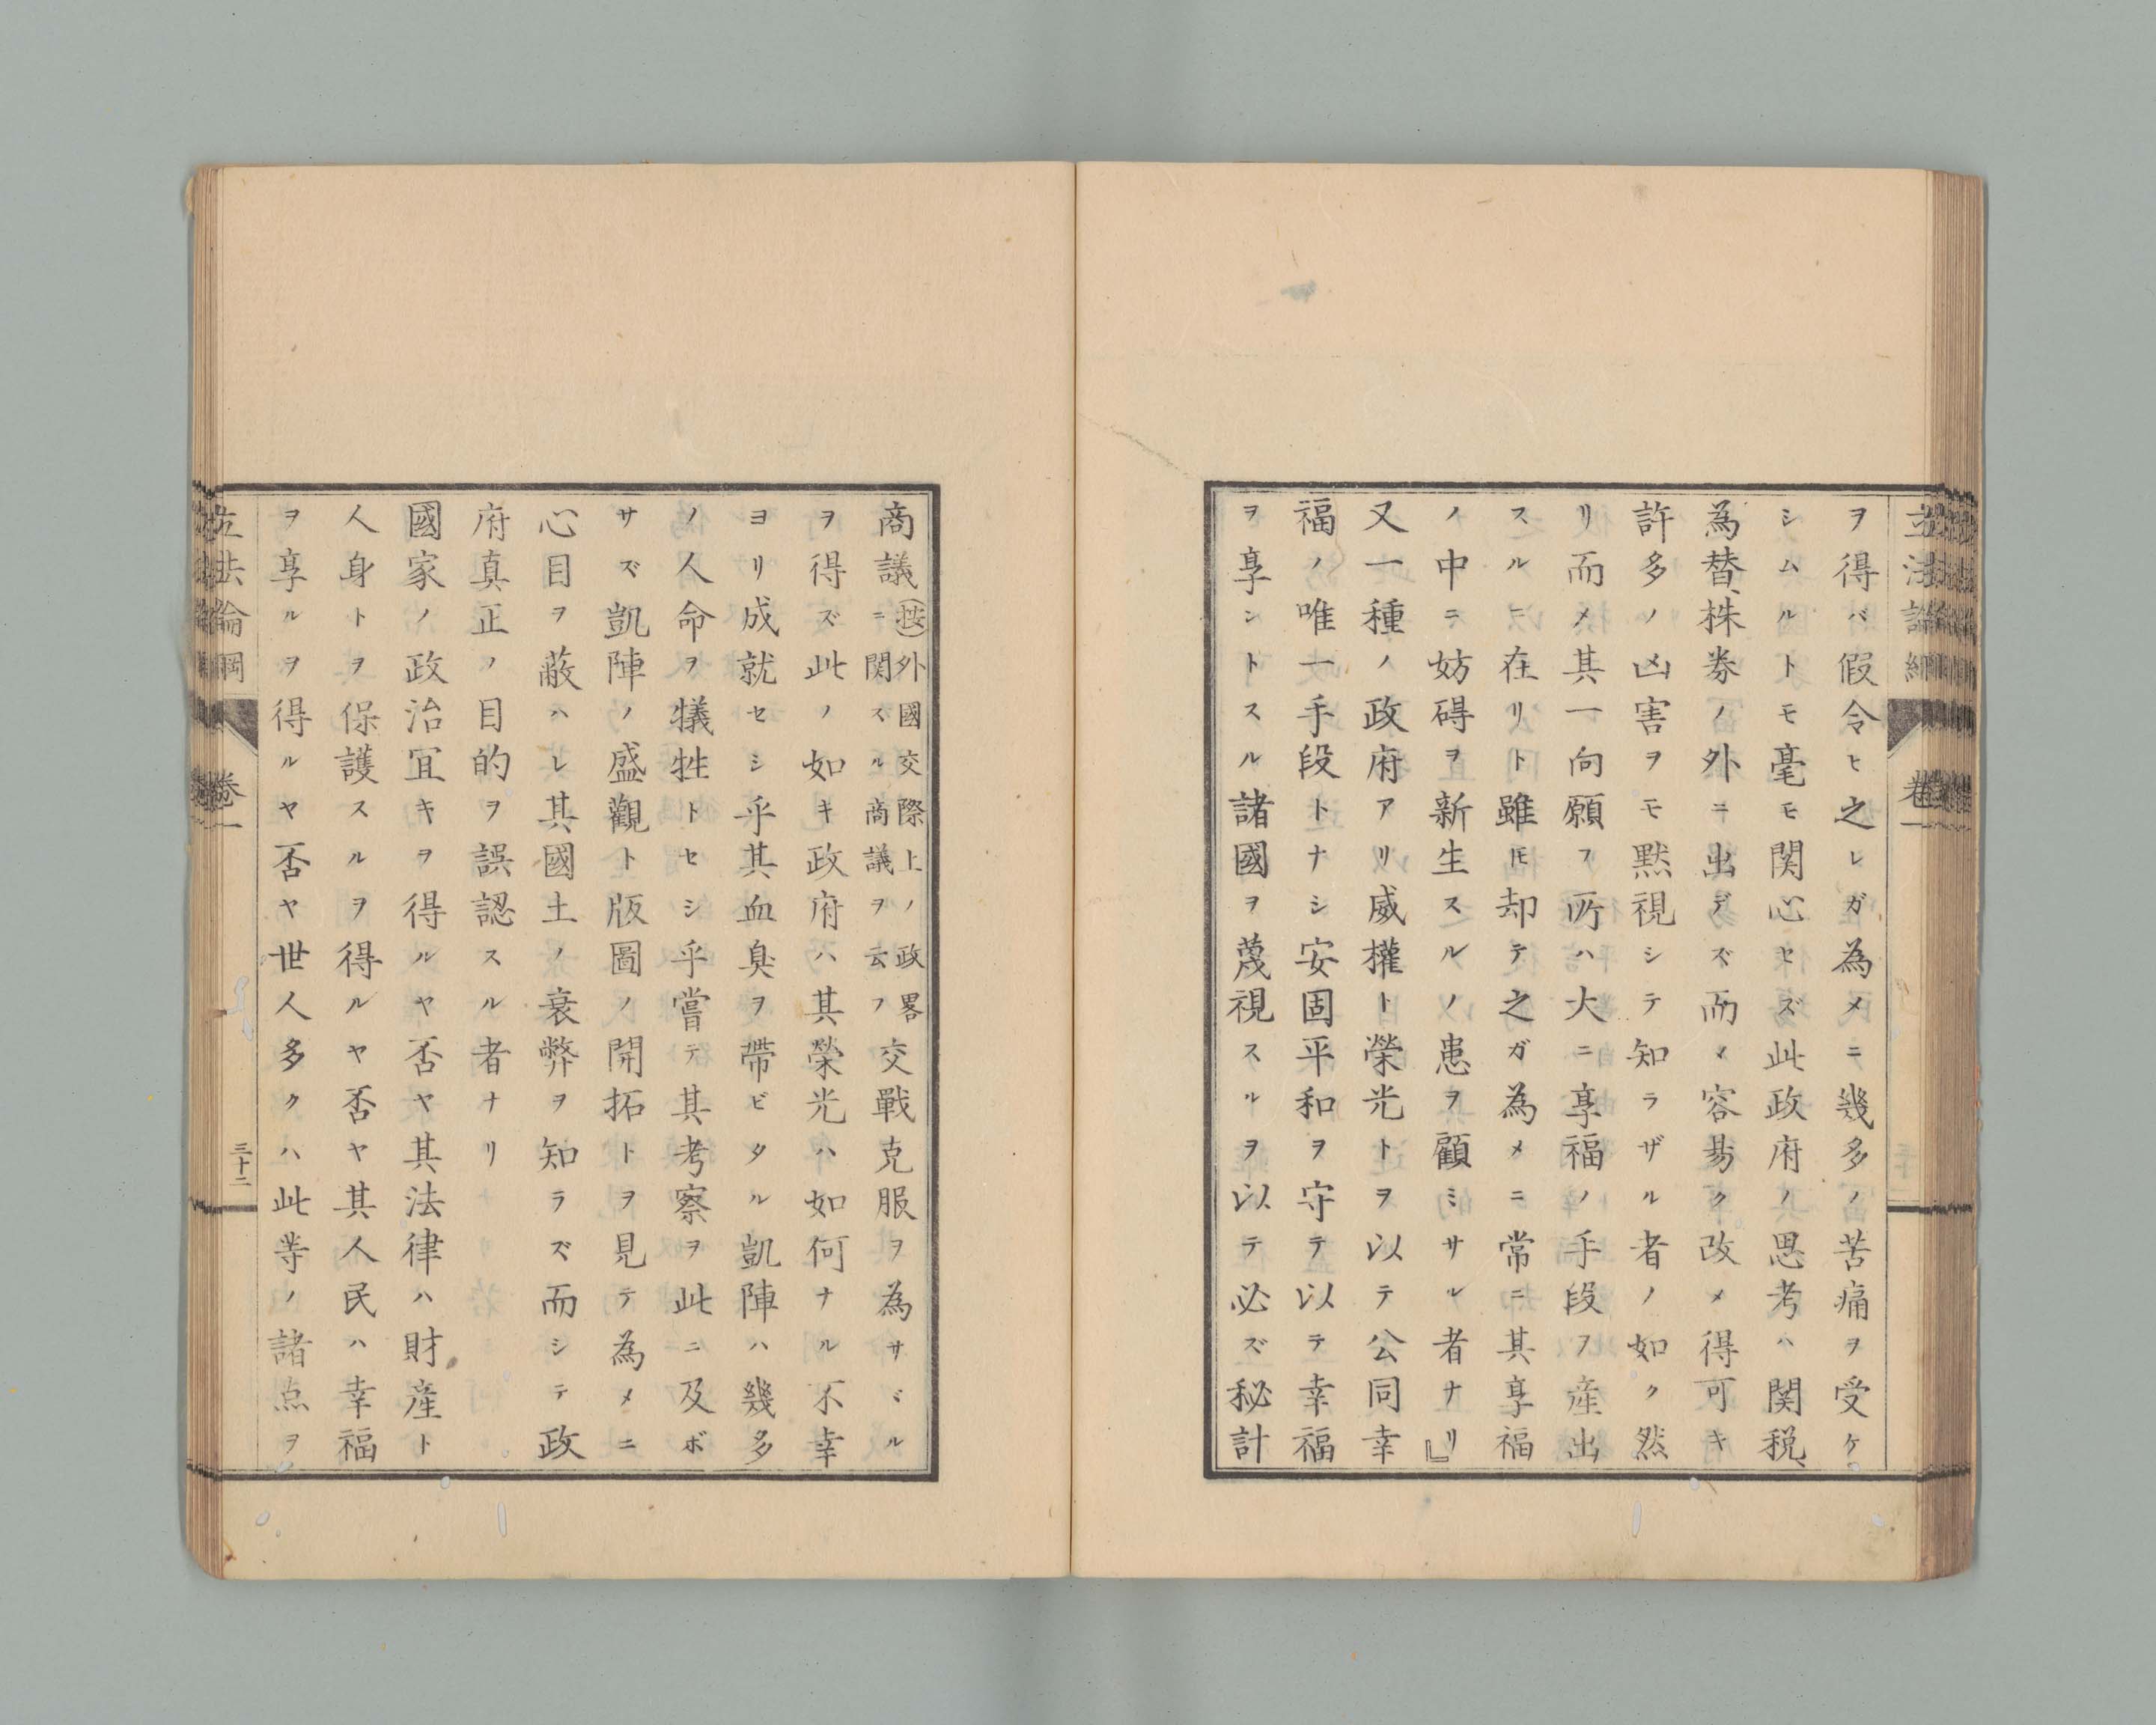 立法論綱
卷一
ヲ得バ假令ヒ之レガ為メニ幾多ノ苦痛ヲ受ケ
シムルトモ毫モ関心セズ此政府ノ思考ハ関税、
為替、株券ノ外ニ出デズ而メ容易ク改メ得可キ
許多ノ凶害ヲモ黙視シテ知ラザル者ノ如ク然
リ而メ其一向願フ所ハ大ニ享福ノ手段フ産出
スルニ在リト雖𪜈却テ之ガ為メニ常ニ其享福
ノ中ニ妨碍ヲ新生スルノ患ヲ顧ミサル者ナリ』
又一種ノ政府アリ威權ト榮光トヲ以テ公同幸
福ノ唯一手段トナシ安固平和ヲ守テ以テ幸福
ヲ享ントスル諸國ヲ蔑視スルヲ以テ必ズ秘計
商議按外國交際上ノ政畧ニ関スル商議ヲ云フ交戰克服ヲ為サヾル
ヲ得ズ此ノ如キ政府ハ其榮光ハ如何ナル不幸
ヨリ成就セシ乎其血臭ヲ帶ビタル凱陣ハ幾多
ノ人命ヲ犧牲トセシ乎嘗テ其考察ヲ此ニ及ボ
サズ凱陣ノ盛觀ト版圖ノ開拓トヲ見テ為メニ
心目ヲ蔽ハレ其國土ノ衰弊ヲ知ラズ而シテ政
府真正ノ目的ヲ誤認スル者ナリ
國家ノ政治冝キヲ得ルヤ否ヤ其法律ハ財産ト
人身トヲ保護スルヲ得ルヤ否ヤ其人民ハ幸福
ヲ享ルヲ得ルヤ否ヤ世人多クハ此等ノ諸点ヲ
立法論綱
卷一
三十二